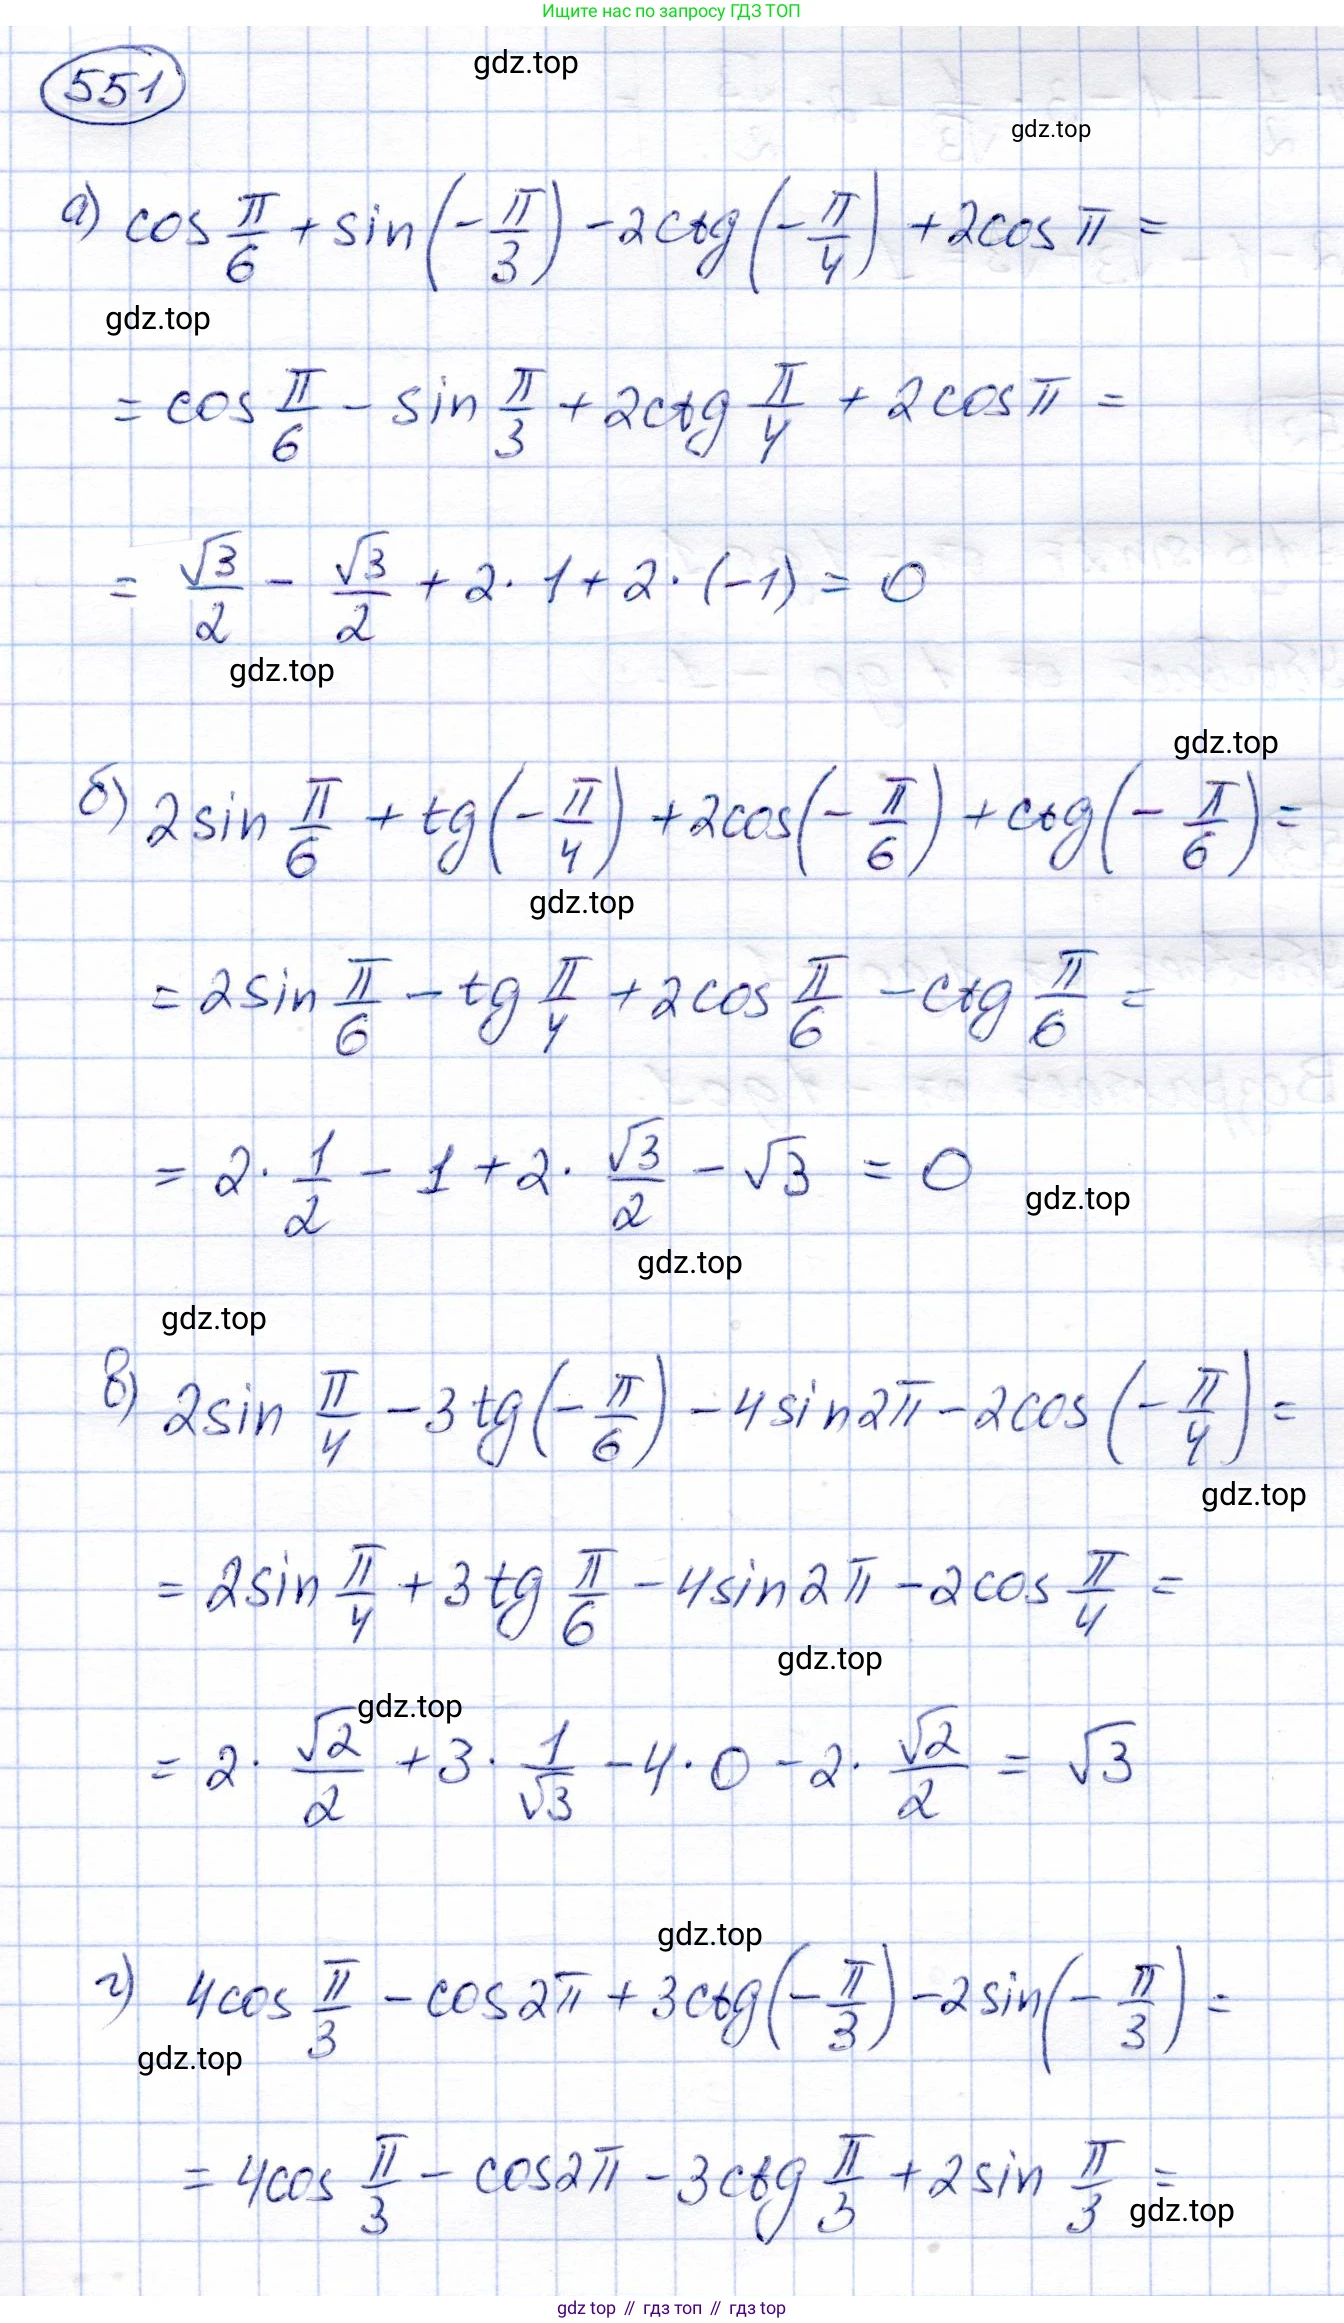 Ищите нас по запросу ГДЗ ТОП
551
gdz.top
gdz.top
а) cos π/6 + sin(-π/3) - 2ctg(-π/4) + 2cos π =
gdz.top
= cos π/6 - sin π/3 + 2ctg π/4 + 2cos π =
= √3/2 - √3/2 + 2·1 + 2·(-1) = 0
gdz.top
gdz.top
б) 2sin π/6 + tg(-π/4) + 2cos(-π/6) + ctg(-π/6) =
gdz.top
= 2sin π/6 - tg π/4 + 2cos π/6 - ctg π/6 =
= 2·1/2 - 1 + 2·√3/2 - √3 = 0
gdz.top
gdz.top
gdz.top
в) 2sin π/4 - 3tg(-π/6) - 4sin2π - 2cos(-π/4) =
gdz.top
= 2sin π/4 + 3tg π/6 - 4sin2π - 2cos π/4 =
gdz.top
gdz.top
= 2·√2/2 + 3·1/√3 - 4·0 - 2·√2/2 = √3
gdz.top
г) 4cos π/3 - cos2π + 3ctg(-π/3) - 2sin(-π/3) =
gdz.top
= 4cos π/3 - cos2π - 3ctg π/3 + 2sin π/3 =
gdz.top
gdz top // гдз топ // гдз top